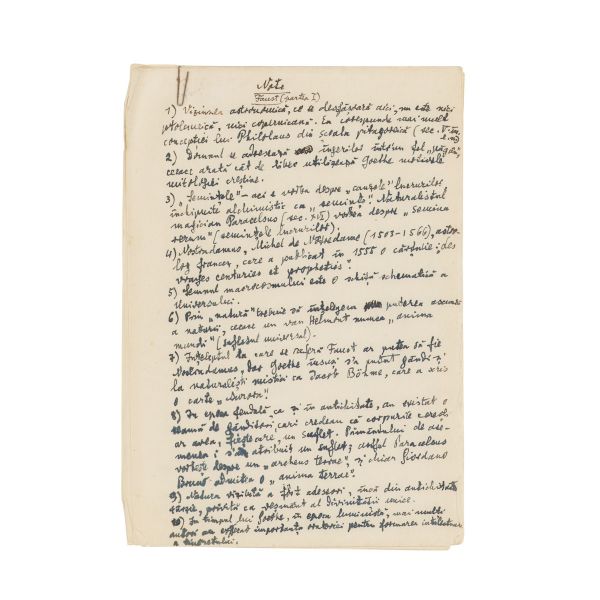 Note
Faust (partea I)
1) Viziunea astronomică, ce se desfășoară aici, nu este nici
ptolemeică, nici coperniciană. Ea corespunde mai mult
concepției lui Philolaus din școala pitagoreică (sec. V
2) Domnul se adresează îngerilor într'un fel
ceeace arată cât de liber utilizează Goethe motivele
mitologiei creștine.
3) „Semințele" – aci e vorba despre „cauzele" lucrurilor
închipuite alchimistic ca „semințe". Naturalistul
magician Paracelsus (sec. XVI) vorbea despre „Semina
rerum" (semințele lucrurilor).
4) Nostradamus, Michel de (1503–1566), astro-
log francez, care a publicat în 1555 o cărțulie: des
vrayes centuries et prophéties".
5) Semnul macrocosmului este o schiță schematică a
Universului.
6) Prin „natură" trebuie să înțelegem puterea ascunsă
a naturii, ceeace un van Helmont numea „anima
mundi" (sufletul universal).
7) Înțeleptul la care se referă Faust ar putea să fie
Nostradamus, dar Goethe însuși s'a putut gândi și
la naturaliști mistici ca Jacob Böhme, care a scris
o carte „Aurora".
8) În epoca feudală ca și în antichitate, au existat o
seamă de gânditori, cari credeau că corpurile cerești
ar avea, fiecare, un suflet. Pământului de ase-
menea i s'a atribuit un suflet; astfel Paracelsus
vorbește despre un „archeus terrae", și chiar Giordano
Bruno admitea o „anima terrae".
9) Natura vizibilă a fost adeseori, încă din antichitate
târzie, privită ca veșmânt al Divinității unice.
10) În timpul lui Goethe, în epoca luministă, mai mulți
autori au importanța oratoriei pentru formarea intelectuală
a tineretului.